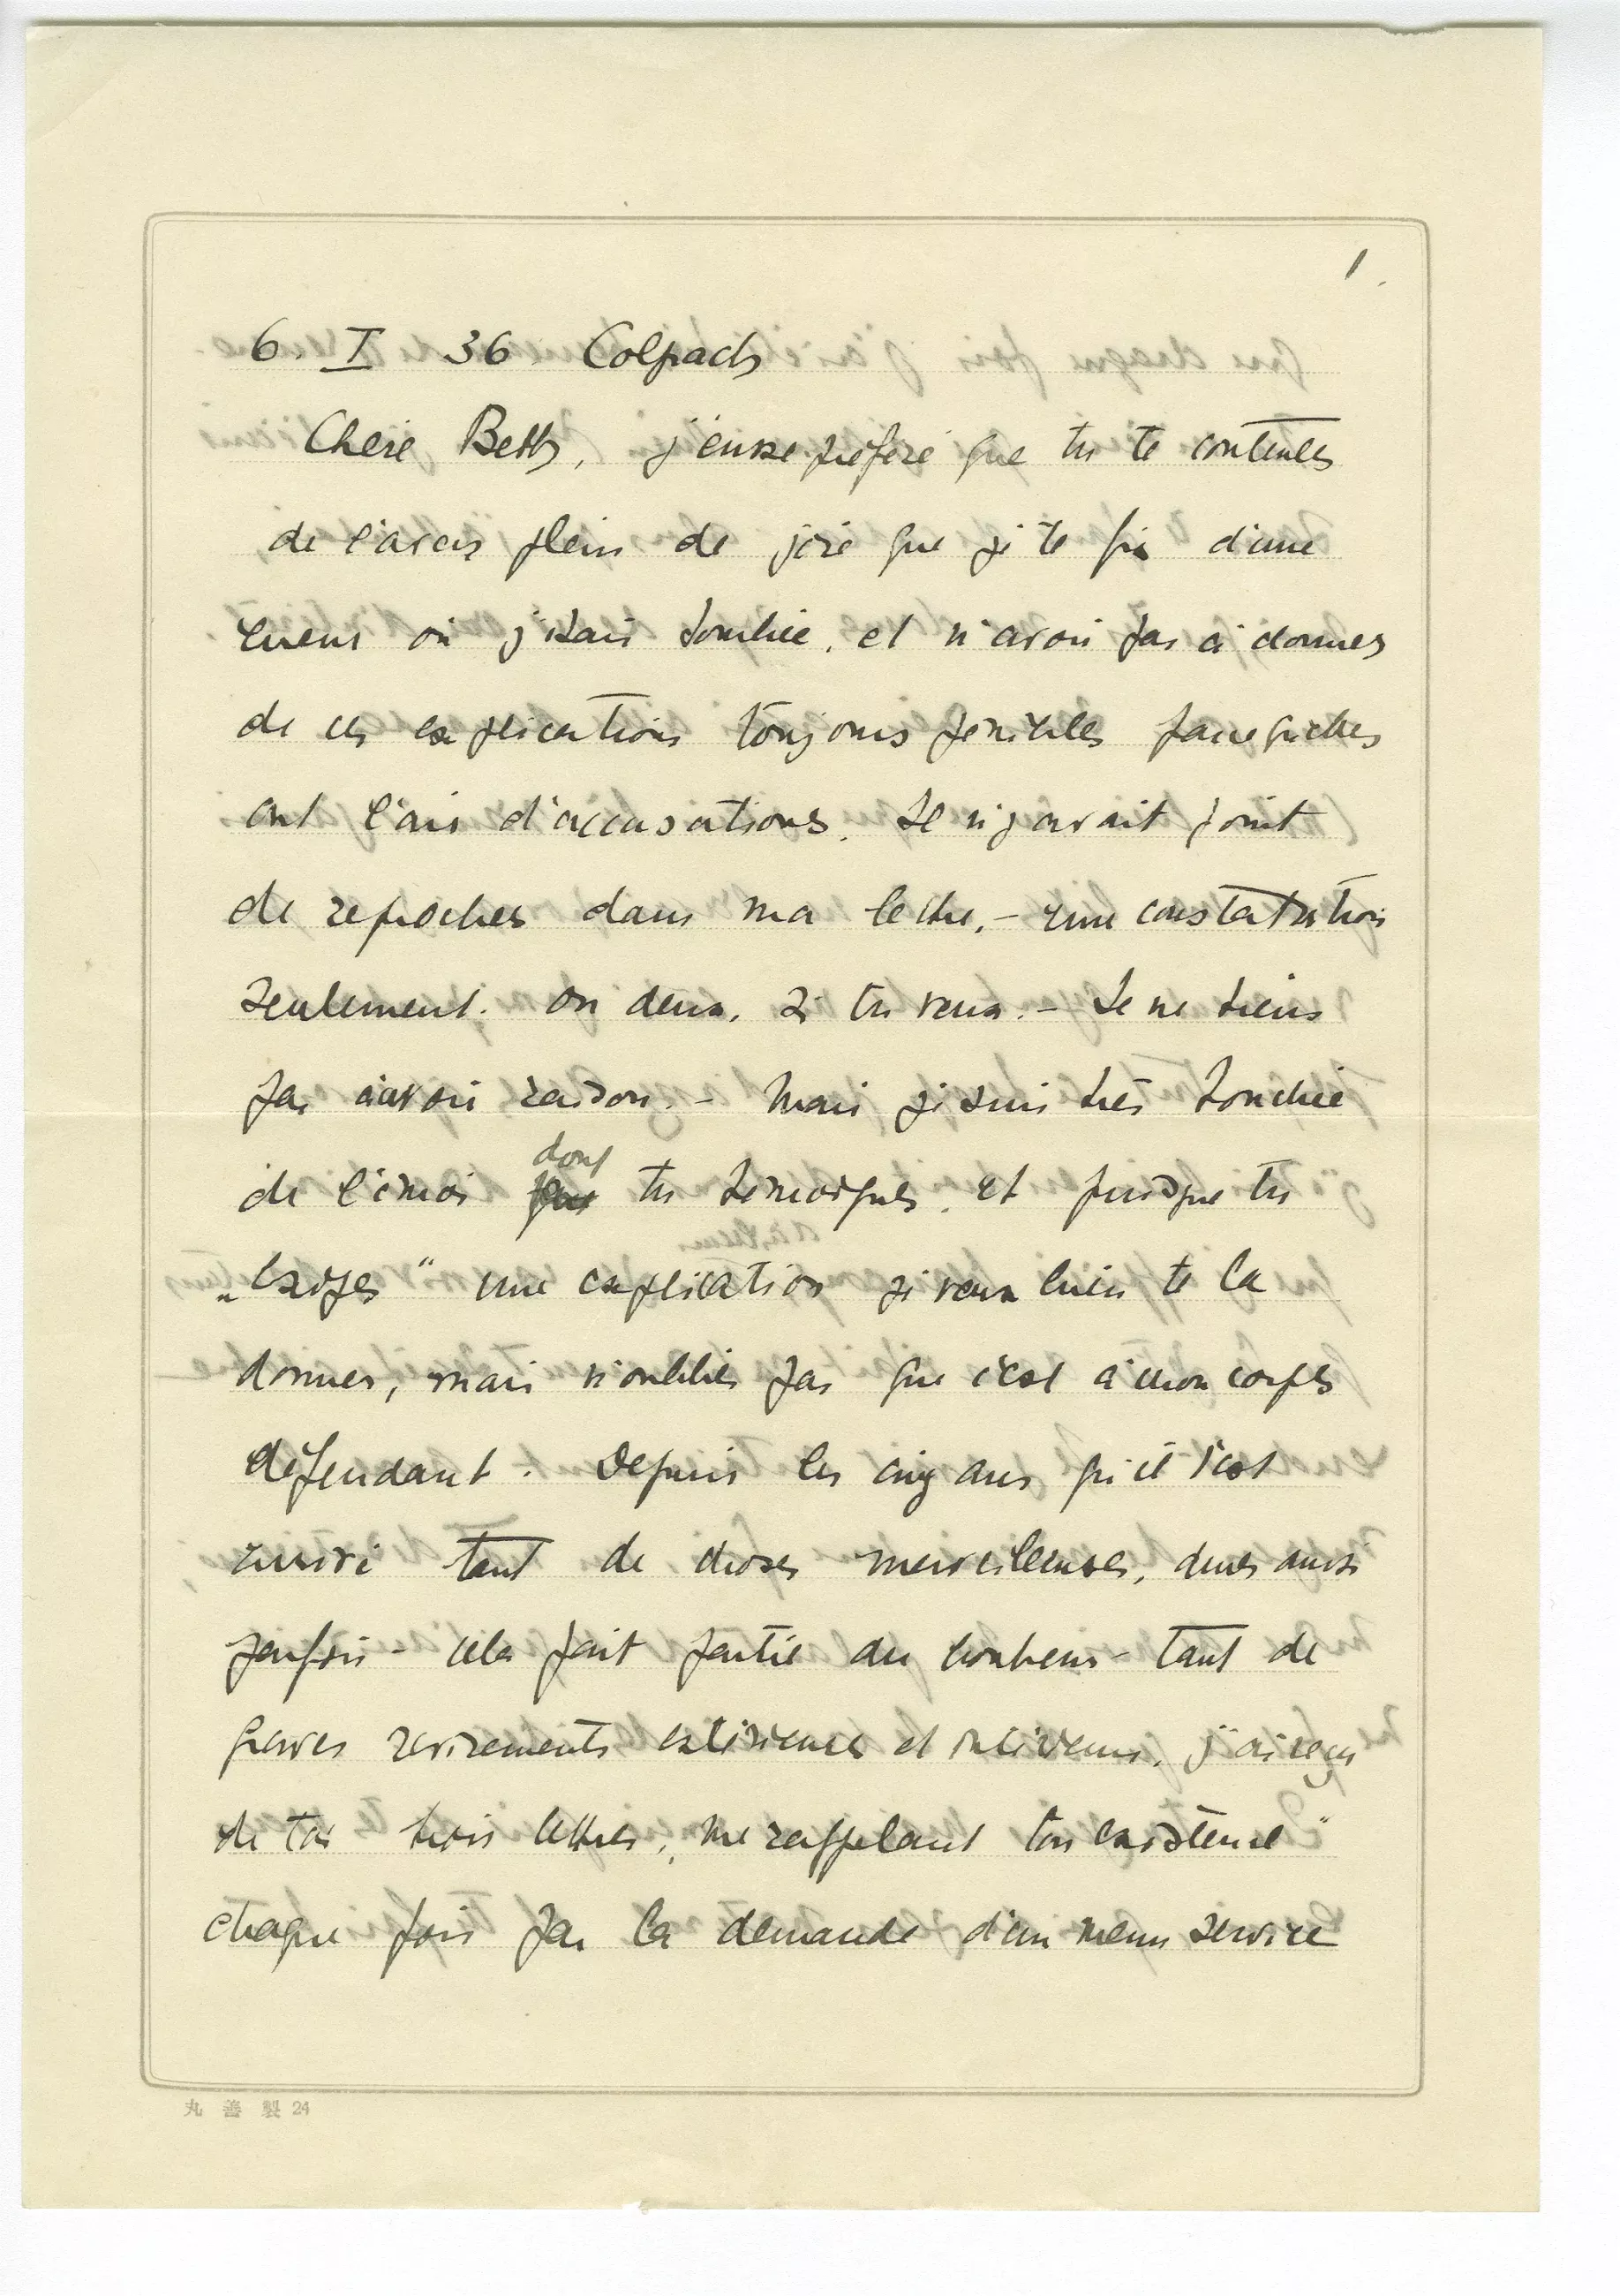 1.
6. I 36. Colpach
Chère Betty, j'eusse préféré que tu te contentes
de l'aveu plein de joie que je te fis d'une
erreur où j'étais tombée, et n'avoir pas à donner
de ces explications toujours pénibles parcequ'elles
ont l'air d'accusations. Il n'y avait point
de reproches dans ma lettre, – une constatation
seulement. ou deux, si tu veux. – Je ne tiens
pas à avoir raison. – Mais je suis très touchée
de l'émoi dont tu témoignes, et puisque tu
„exiges" une explication je veux bien te la
donner, mais n'oublies pas que c'est à mon corps
défendant. Depuis les cinq ans qu'il s'est
suivi tant de choses merveilleuses, dures aussi
parfois – cela fait partie du bonheur – tant de
graves revirements extérieurs et intérieurs, j'ai reçu
de toi trois lettres, „me rappelant ton existence"
chaque fois par la demande d'un menu service
丸善製 24